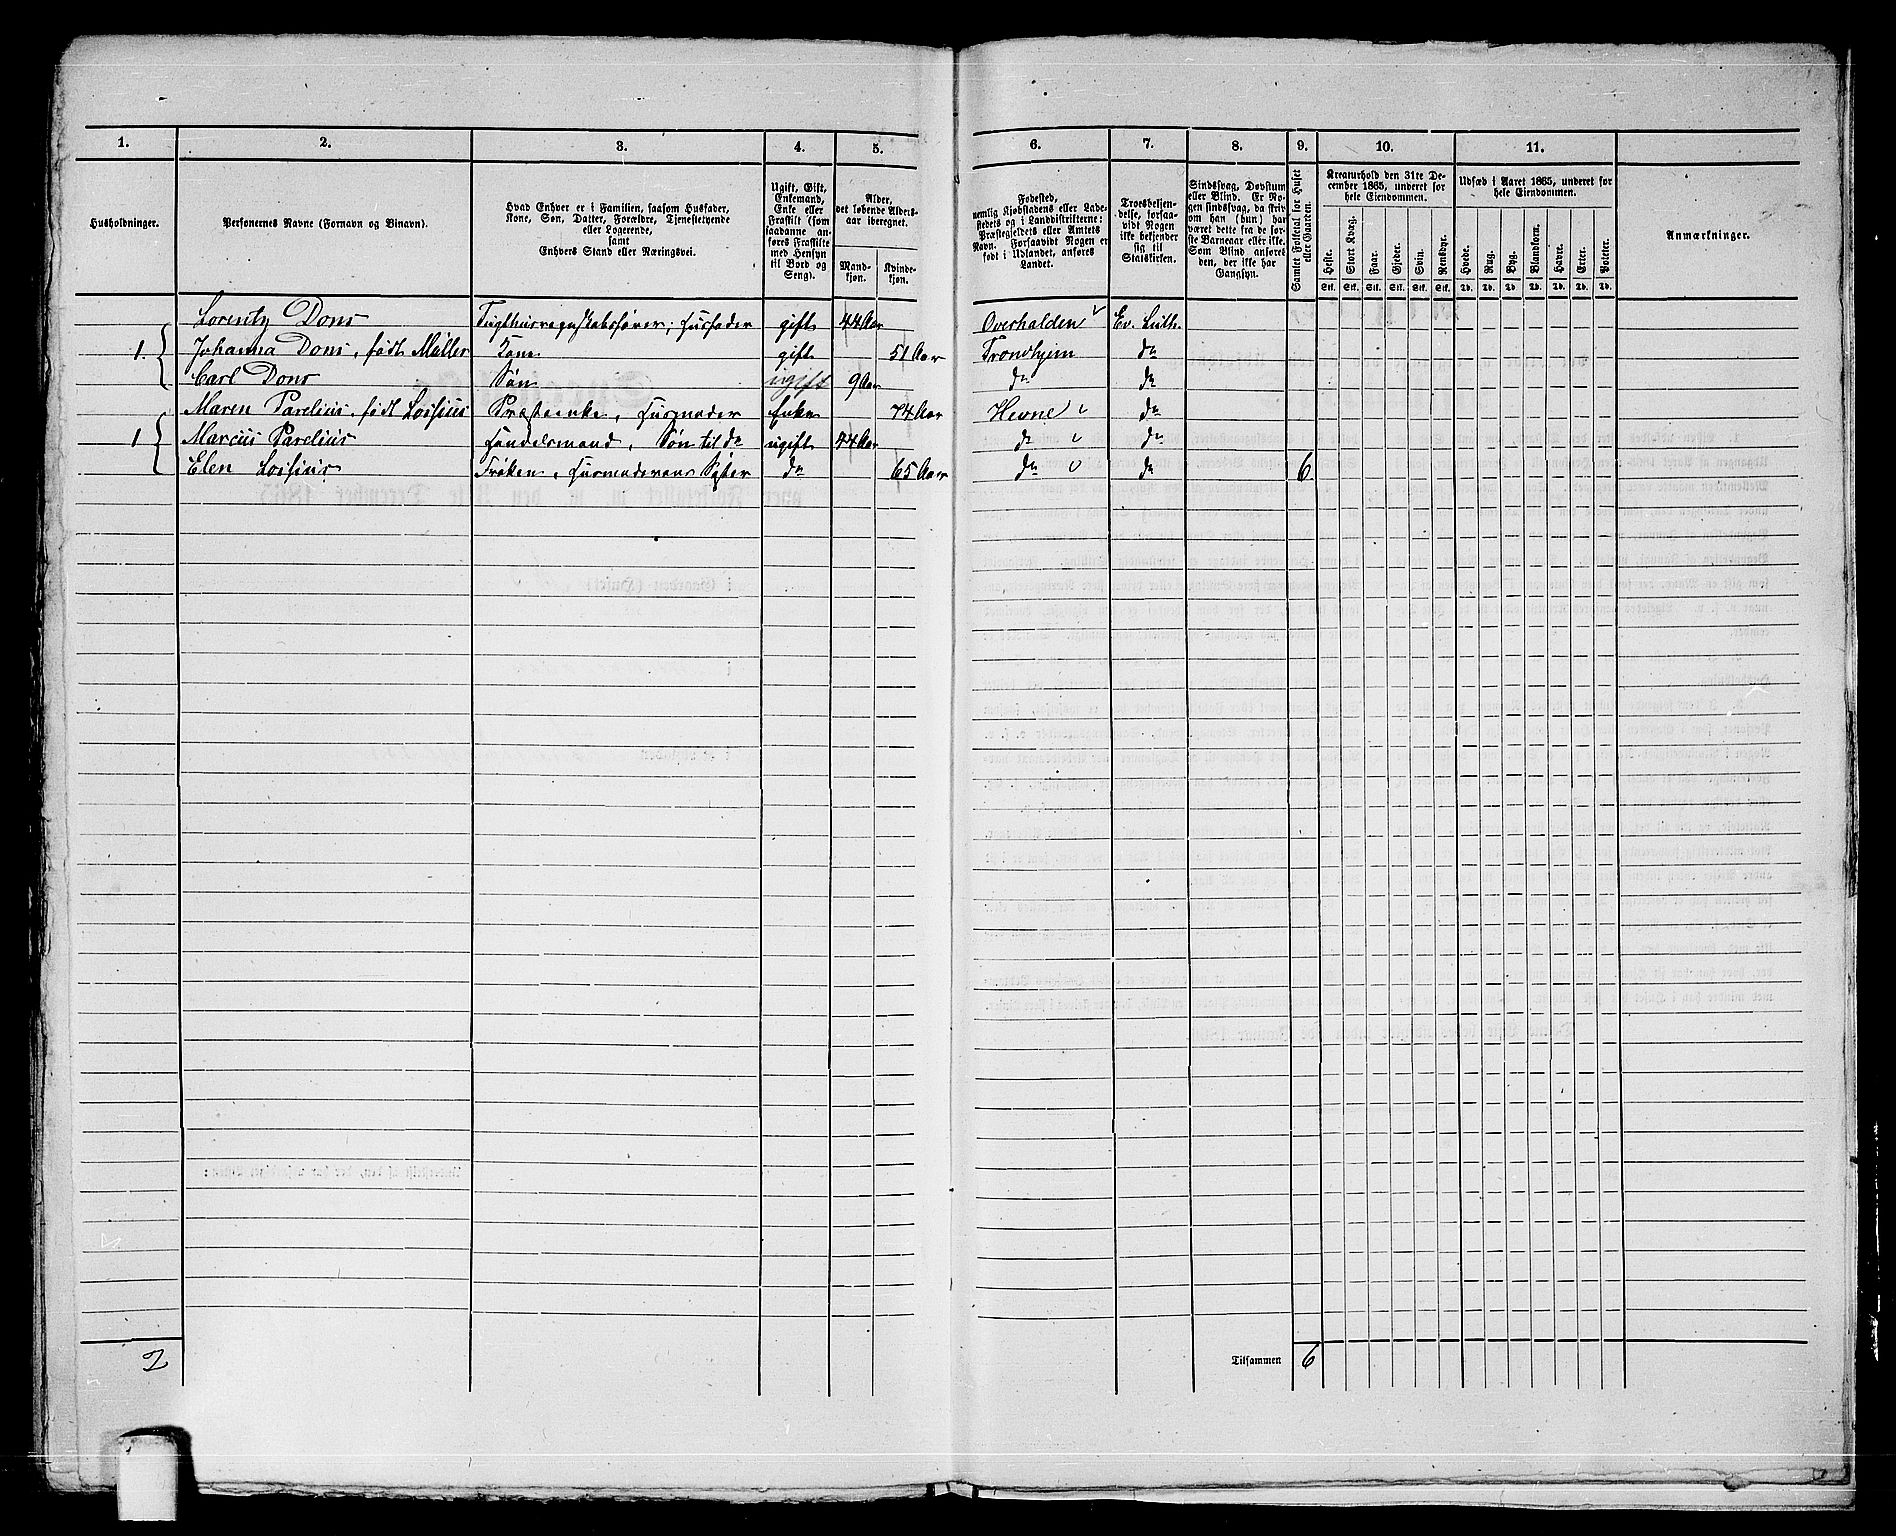 1. 2. 3. 4. 5. 6. 7. 8. 9. 10. 11.
Husholdninger.
Personernes Navne (Fornavn og Binavn).
Hvad Enhver er i Familien, saasom Husfader,
Kone, Søn, Datter, Forældre, Tjenestetyende
eller Logerende,
samt
Enhvers Stand eller Næringsvei.
Ugift, Gift,
Enkemand,
Enke eller
Fraskilt (som
saadanne an-
føres Fraskilte
med Hensyn
til Bord og
Seng).
Alder,
det løbende Alders-
aar iberegnet.
Mand-
kjøn.
Kvinde-
kjøn.
Fødested,
nemlig Kjøbstadens eller Lade-
stedets og i Landdistrikterne:
Præstegjeldets eller Amtets
Navn. Forsaavidt Nogen er
født i Udlandet, anføres
Landet.
Troesbekjen-
delse, forsaa-
vidt Nogen
ikke bekjender
sig til
Statskirken.
Sindssvag, Døvstum
eller Blind. Er No-
gen sindssvag, da skriv
om han (hun) har
været dette fra de før-
ste Barneaar eller ikke.
Som Blind anføres
den, der ikke har
Gangsyn.
Samlet Folketal for Huset
eller Gaarden.
Kreaturhold den 31te De-
cember 1865, underet for
hele Eiendommen.
Heste. Stort Kvæg. Faar. Gjeder. Svin. Rensdyr.
Stk. Stk. Stk. Stk. Stk. Stk.
Udsæd i Aaret 1865, underet for
hele Eiendommen.
Hvede. Rug. Byg. Blandkorn. Havre. Erter. Poteter.
Td. Td. Td. Td. Td. Td. Td.
Anmærkninger.
Lorentz Dons Tugthusregnskabsfører, Husfader gift 44 Aar Overhalden Ev. Luth.
1. Johanna Dons, født Müller Kone gift 51 Aar Trondhjem do
Carl Dons Søn ugift 9 Aar do do
Maren Parelius, født Lossius Præsteenke, Husmoder Enke 74 Aar Hevne do
1 Marcus Parelius Handelsmand, Søn til do ugift 44 Aar do do
Elen Lossius Frøken, Husmoderens Søster do 65 Aar do do 6
2 Tilsammen 6